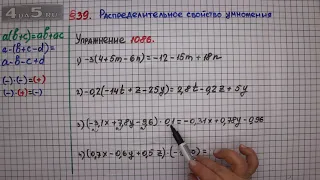 4 до 5
§39. Распределительное свойство умножения
a(b+c)=ab+ac
a-(b+c-d)=
a-b-c+d
(-)·(-)=(+)
(+)·(-)=(-)
Упражнение 1086.
1) -3(4+5m-6n)=-12-15m+18n
2) -0,2(-14t+z-25y)=2,8t-0,2z+5y
3) (-3,1x+7,8y-9,6)·0,1=-0,31x+0,78y-0,96
4) (0,7x-0,6y+0,5z)·(